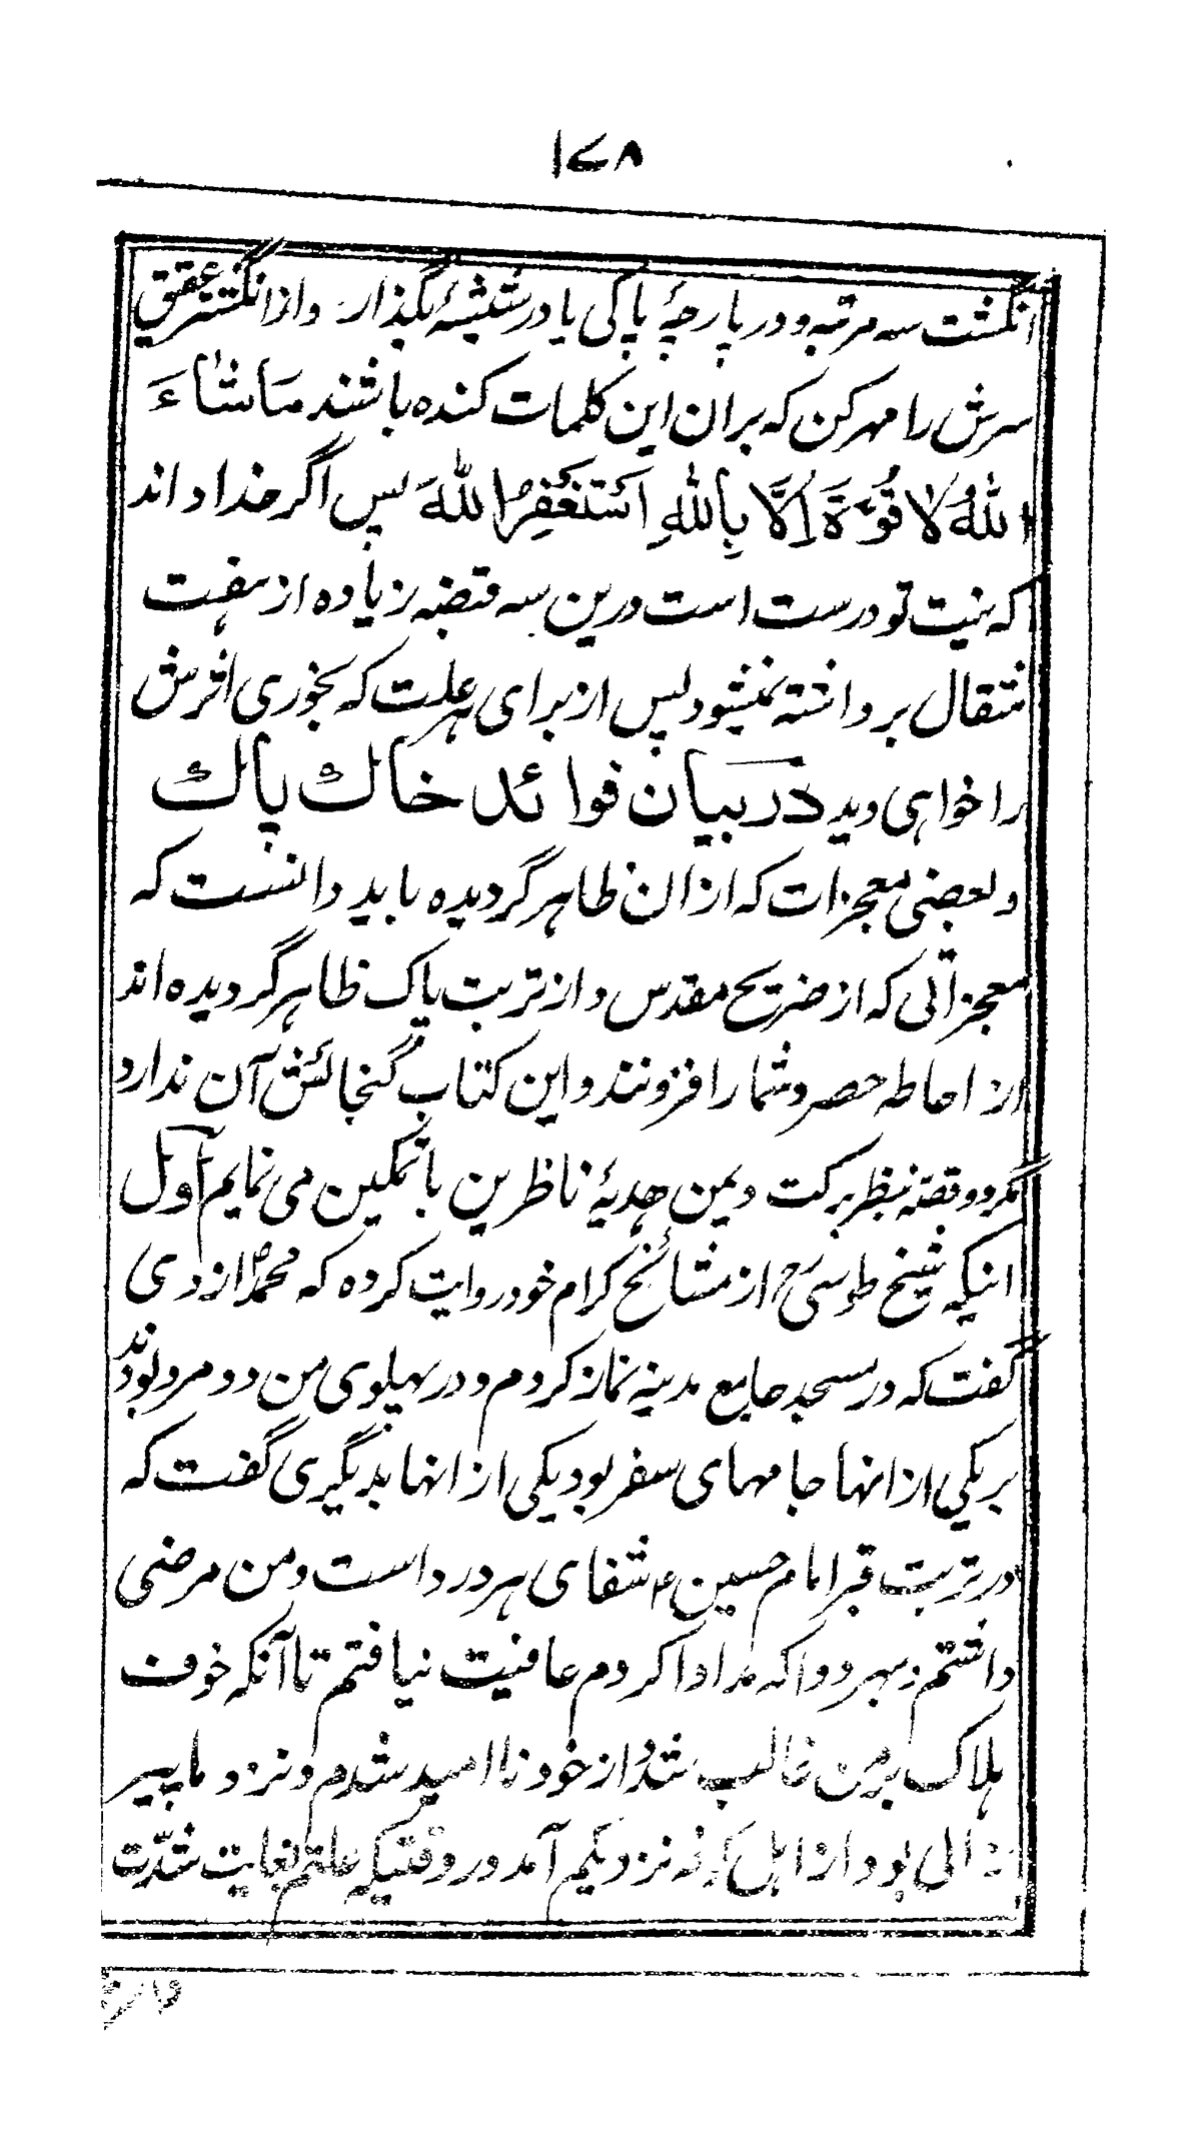 ۱۷۸
انگشت سه مرتبه و در پارچهٔ پاکی یا در شیشهٔ بگذار و از انگشتر عقیق
سرش را مهر کن که بران این کلمات کنده باشند مَا شَاءَ
اللهُ لَا قُوَّةَ اِلَّا بِاللهِ اَسْتَغْفِرُ اللهَ پس اگر خدا داند
که نیت تو درست است درین سه قبضه زیاده از هفت
مثقال برداشته نمیشود پس از برای هر علت که بخوری اثرش
را خواهی دید در بیان فوائد خاک پاک
و بعضی معجزات که از ان ظاهر گردیده باید دانست که
معجزاتی که از ضریح مقدس و از تربت پاک ظاهر گردیده اند
از احاطه حصر و شمار افزونند و این کتاب گنجائش آن ندارد
مگر دو قصّه بنظر برکت و یمن هدیهٔ ناظرین با تمکین می نمایم اول
اینکه شیخ طوسیؒ از مشائخ کرام خود روایت کرده که محمد ازدی
گفت که در مسجد جامع مدینه نماز کردم و در پهلوی من دو مرد بودند
بر یکی از انها جامهای سفر بود یکی از انها بدیگری گفت که
در تربت قبر امام حسین ع شفای هر درد است و من مرضی
داشتم بهر دوا که مداوا کردم عافیت نیافتم تا آنکه خوف
هلاک بر من غالب شد و از خود نا امید شدم و نزد ما پیر
زالی بود از اهل کوفه نزدیکم آمد در وقتیکه علتم بغایت شدّت